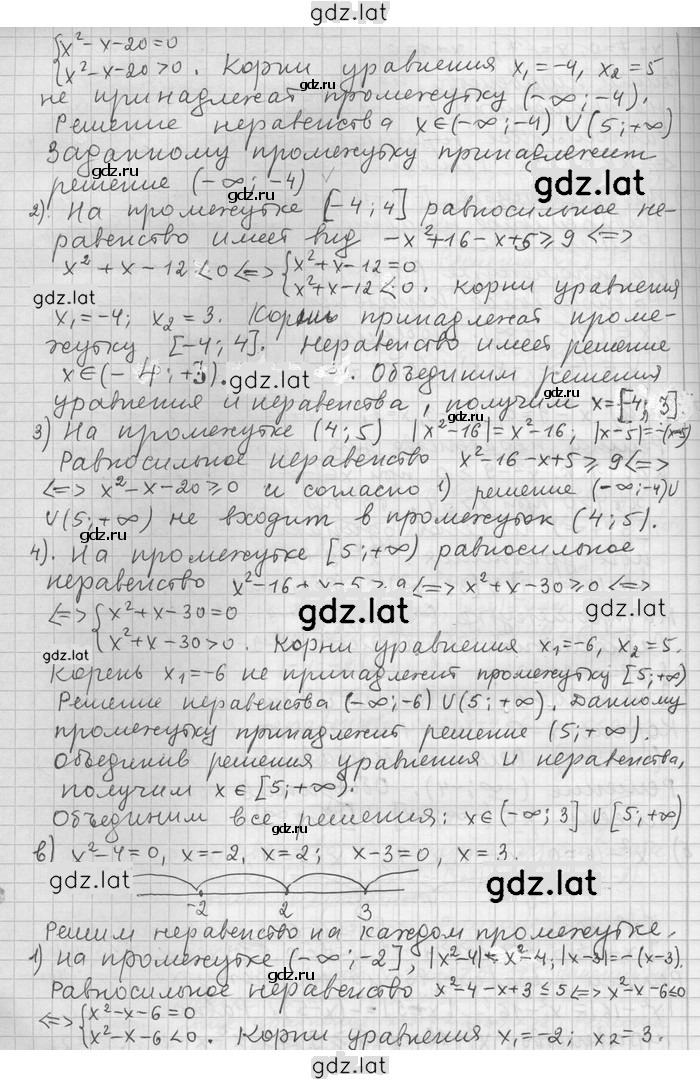 gdz.lat
{x²-x-20=0
{x²-x-20>0. Корни уравнения x₁=-4, x₂=5
не принадлежат промежутку (-∞;-4).
Решение неравенства x∈(-∞;-4)∪(5;+∞)
Заданному промежутку принадлежит
решение (-∞;-4)
gdz.lat
2). На промежутке [-4;4] равносильное не-
равенство имеет вид -x²+16-x+5⩾9 <=>
x²+x-12<0 <=> {x²+x-12=0
{x²+x-12<0. Корни уравнения
gdz.lat
x₁=-4; x₂=3. Корни принадлежат проме-
жутку [-4;4]. Неравенство имеет решение
x∈(-4;+3). Объединим решения
gdz.lat
уравнения и неравенства, получим x=[4; 3]
3) На промежутке (4;5) |x²-16|=x²-16; |x-5|=-(x-5)
Равносильное неравенство x²-16-x+5⩾9<=>
<=> x²-x-20⩾0 и согласно 1) решение (-∞;-4)∪
∪(5;+∞) не входит в промежуток (4;5).
4). На промежутке [5;+∞) равносильное
неравенство x²-16+x-5⩾9 <=> x²+x-30⩾0 <=>
<=> {x²+x-30=0
gdz.lat
gdz.lat
{x²+x-30>0. Корни уравнения x₁=-6, x₂=5.
gdz.lat
Корень x₁=-6 не принадлежит промежутку [5;+∞)
Решение неравенства (-∞;-6)∪(5;+∞). Данному
промежутку принадлежит решение (5;+∞).
Объединив решения уравнения и неравенства,
получим x∈[5;+∞).
Объединим все решения: x∈(-∞;3]∪[5;+∞)
в) x²-4=0, x=-2, x=2; x-3=0, x=3.
gdz.lat
gdz.lat
-2 2 3
Решим неравенство на каждом промежутке.
1) На промежутке (-∞;-2], |x²-4|=x²-4; |x-3|=-(x-3).
Равносильное неравенство x²-4-x+3⩽5<=> x²-x-6⩽0
<=> {x²-x-6=0
{x²-x-6<0. Корни уравнения x₁=-2; x₂=3.
gdz.lat